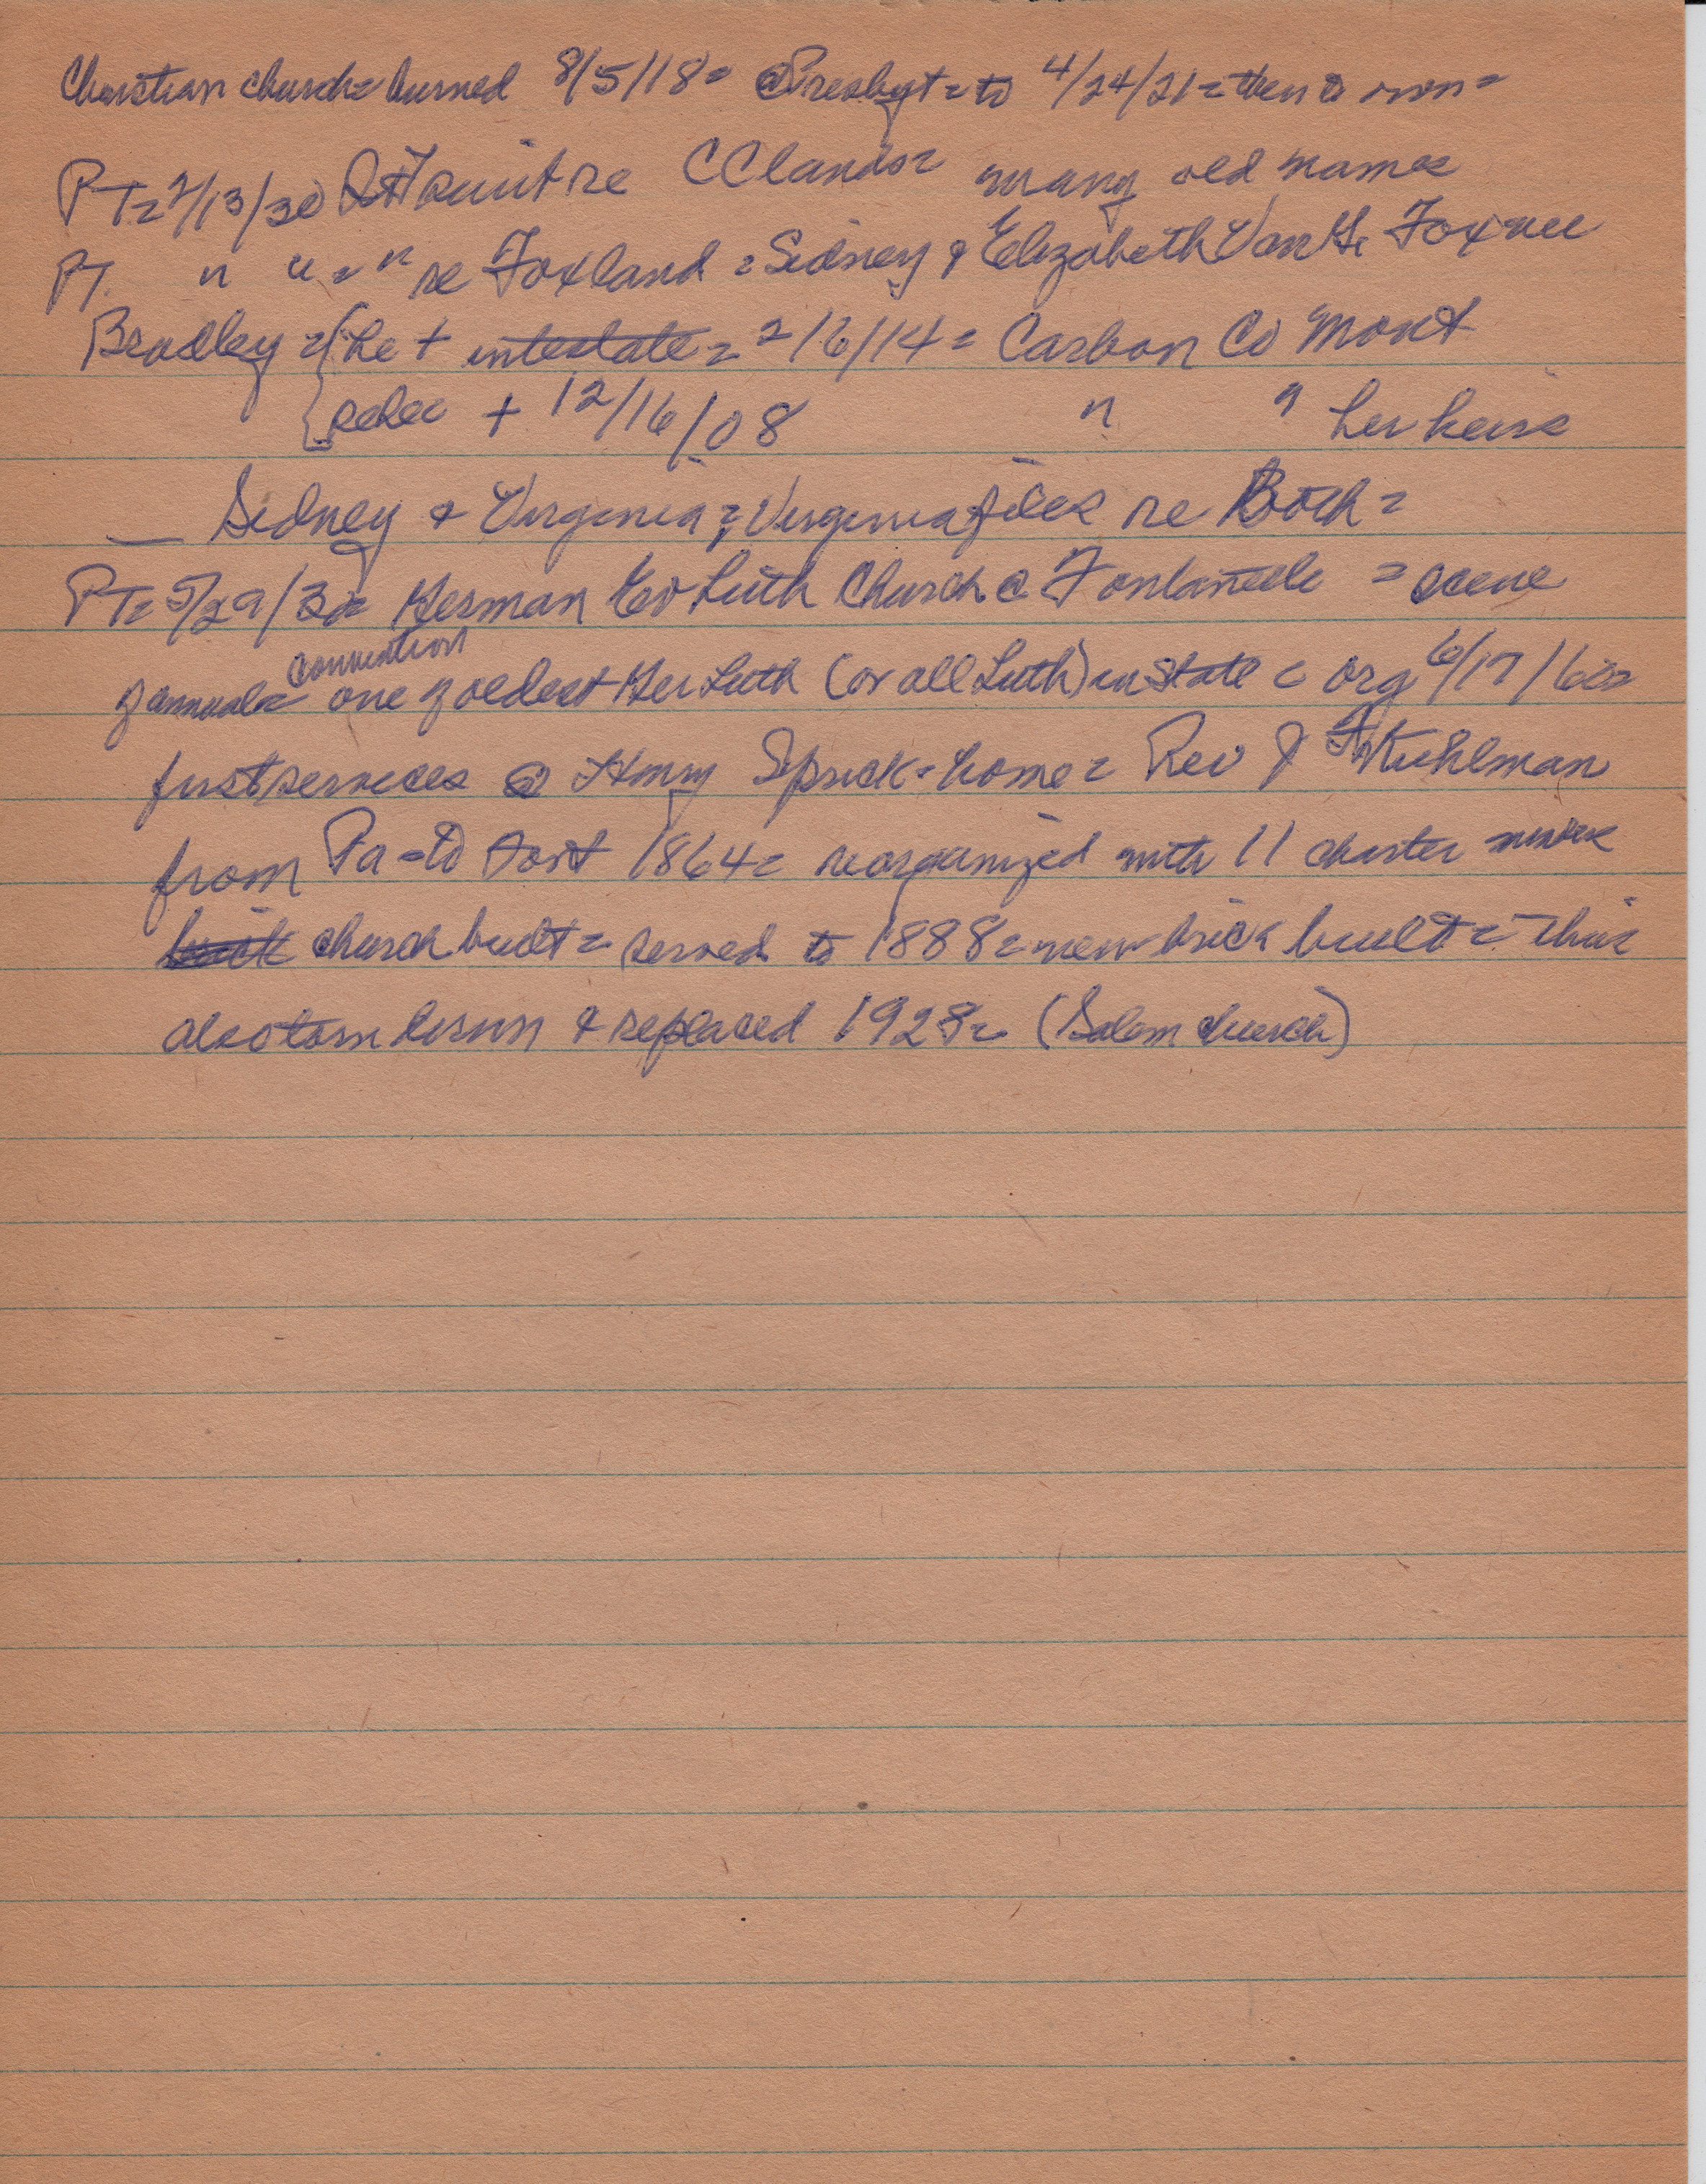 Christian church = burned 8/5/18 = @ Presbyt = to 4/24/21 = then to own =
PT = 2/13/30 QT suit re CC lands = many old names
PT. " " = " re Fox land = Sidney & Elizabeth Van H. Fox nee
Bradley = { he + intestate = 2/6/14 = Carbon Co Mont
{ she + 12/16/08 " " her heirs
— Sidney & Virginia = Virginia files re Both =
PT = 5/29/30 = German Ev Luth Church @ Fontanelle = scene
convention
of annual = one of oldest Ger Luth (or all Luth) in state = org 6/17/60 =
first services @ Henry Sprick = home = Rev J F Kuhlman
from Pa = to Font 1864 = reorganized with 11 charter
brick church built = served to 1888 = new brick built = this
also torn down & replaced 1928 = (Salem church)